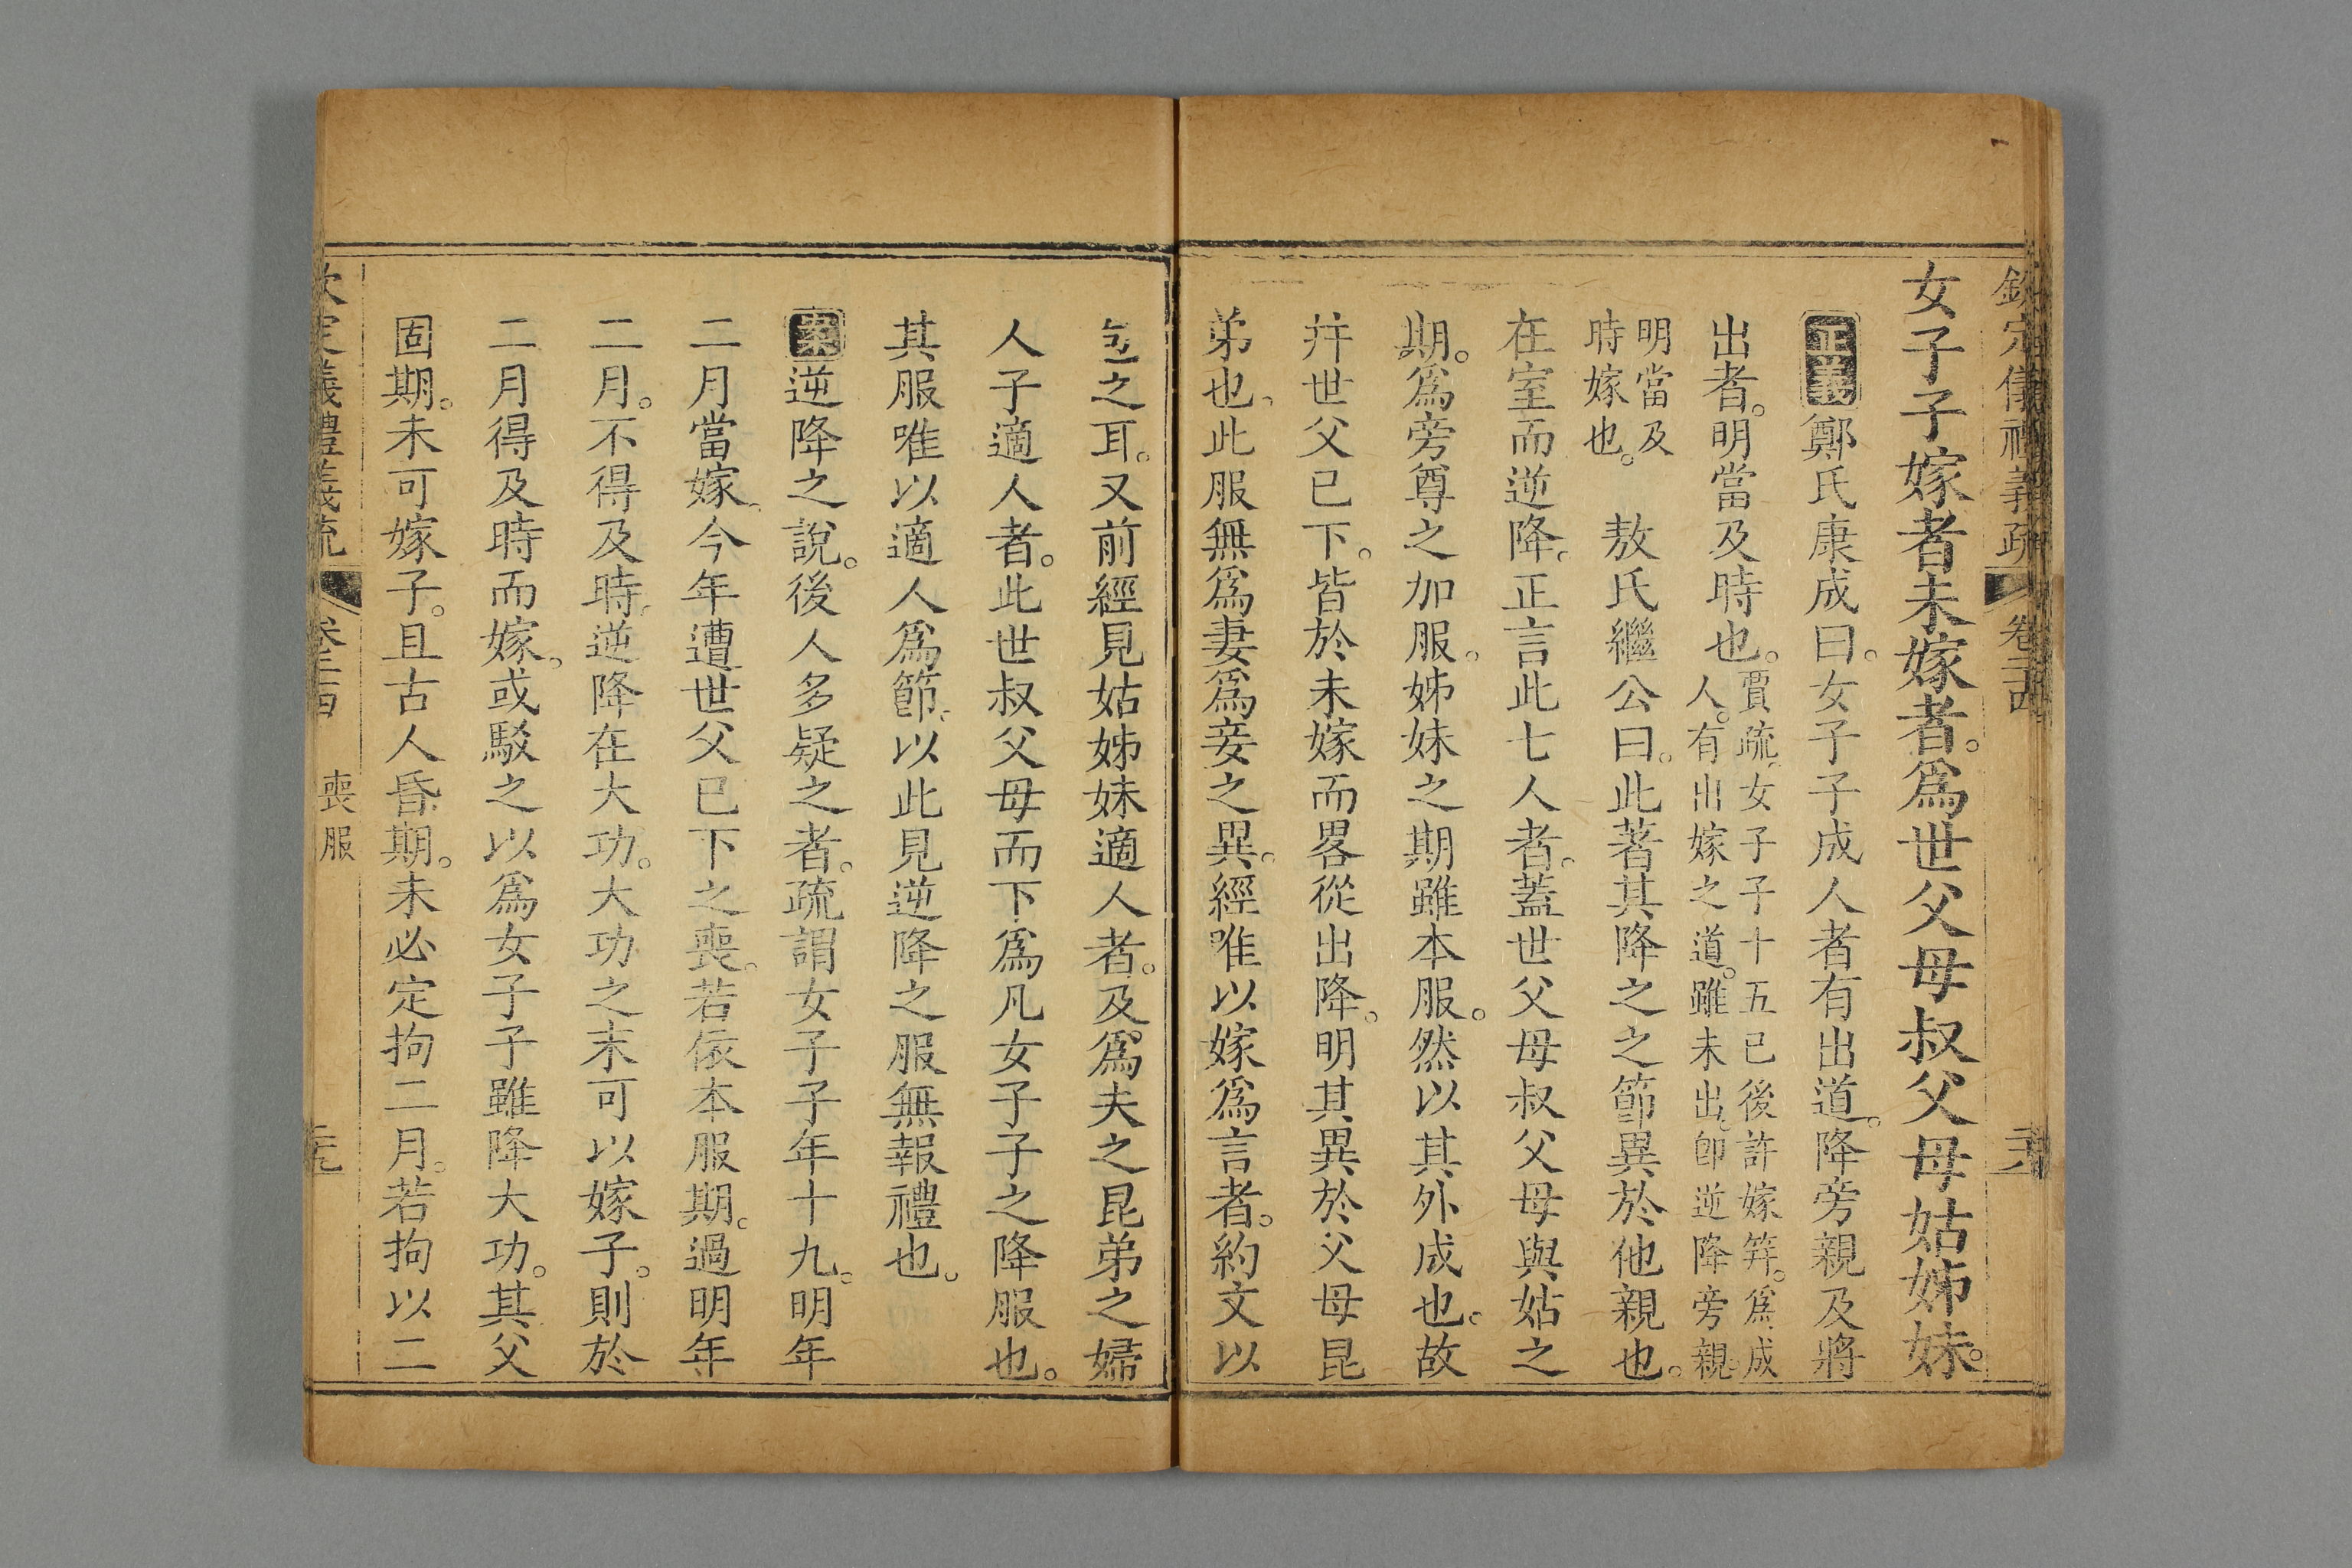 欽定儀禮義疏 卷二十四
女子子嫁者未嫁者。爲世父母叔父母姑姊妹。
正義鄭氏康成曰。女子子成人者有出道。降旁親及將
出者。明當及時也。賈疏。女子子十五已後許嫁笄。爲成
人。有出嫁之道。雖未出。卽逆降旁親。
明當及
時嫁也。
敖氏繼公曰。此著其降之之節異於他親也。
在室而逆降。正言此七人者。蓋世父母叔父母與姑之
期。爲旁尊之加服。姊妹之期雖本服。然以其外成也。故
幷世父已下。皆於未嫁而畧從出降。明其異於父母昆
弟也。此服無爲妻爲妾之異。經唯以嫁爲言者。約文以
包之耳。又前經見姑姊妹適人者。及爲夫之昆弟之婦
人子適人者。此世叔父母而下爲凡女子子之降服也。
其服唯以適人爲節。以此見逆降之服無報禮也。
案逆降之說。後人多疑之者。疏謂女子子年十九。明年
二月當嫁。今年遭世父已下之喪。若依本服期。過明年
二月。不得及時。逆降在大功。大功之末可以嫁子。則於
二月得及時而嫁。或駁之以爲女子子雖降大功。其父
固期。未可嫁子。且古人昏期。未必定拘二月。若拘以二
欽定儀禮義疏 卷二十四 喪服